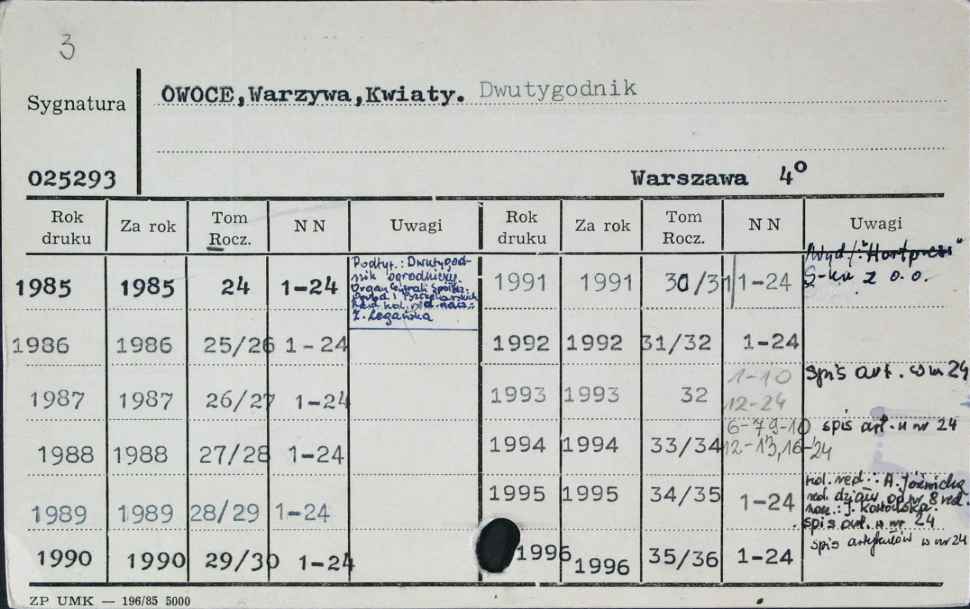 3
Sygnatura
OWOCE,Warzywa,Kwiaty. Dwutygodnik
025293
Warszawa 4º
Rok druku Za rok Tom Rocz. N N Uwagi Rok druku Za rok Tom Rocz. N N Uwagi
1985 1985 24 1-24 Podtyt.: Dwutygod-
nik ogrodniczy.
Organ Centrali Spółdz.
Ogrod. i Pszczelarskich
Red. kol. red. nacz.:
Z. Legańska
1991 1991 30/31 1-24 Wyd.: "Hortpress"
S-ka z o.o.
1986 1986 25/26 1-24 1992 1992 31/32 1-24
1987 1987 26/27 1-24 1993 1993 32 1-10
12-24 spis art. w nr 24
1988 1988 27/28 1-24 1994 1994 33/34 6-7 9-10
12-13,16-24 spis art. w nr 24
1989 1989 28/29 1-24 1995 1995 34/35 1-24 kol. red.: A.
red. działy od nr 8 red.
nacz.: J.
spis art. w nr 24
1990 1990 29/30 1-24 1996 1996 35/36 1-24 spis artykułów w nr 24
ZP UMK — 196/85 5000